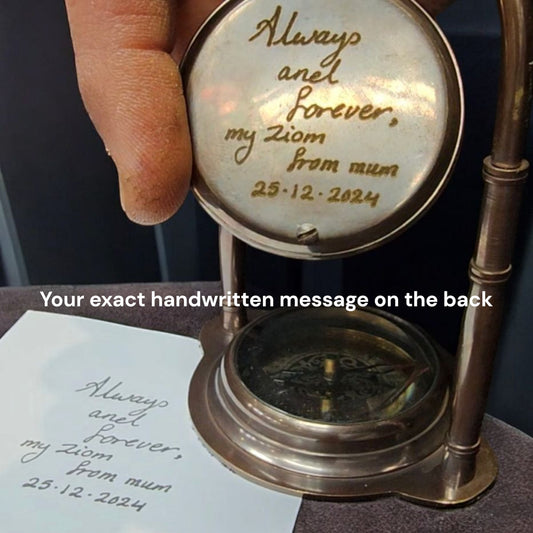 Always
and
forever,
my Ziom
from mum
25.12.2024
Your exact handwritten message on the back
Always
and
forever,
my Ziom
from mum
25.12.2024